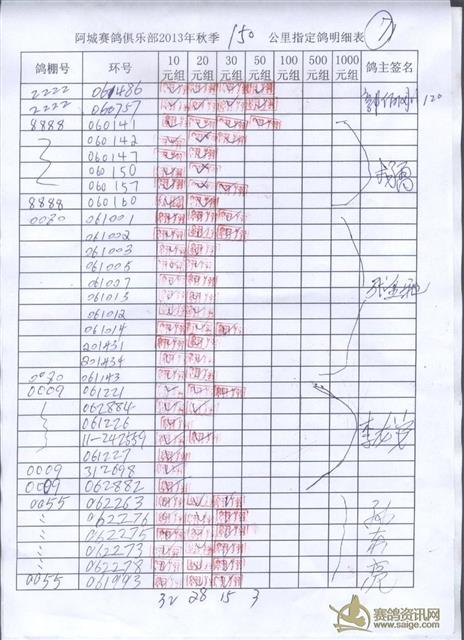 阿城赛鸽俱乐部2013年秋季 150 公里指定鸽明细表 7
鸽棚号 环号 10元组 20元组 30元组 50元组 100元组 500元组 1000元组 鸽主签名
2222 061486
2222 060757 120
8888 060141
060142
060147
060150
060157
8888 060160
0080 061001
061002
061003
061005
061007
061013
061012
061014
201431
201434
0080 061143
0009 061221
062884
061226
11-242559
061227
0009 312698
0009 062882
0055 062263
062276
062275
062273
062278
0055 061943
32 28 15 3
赛鸽资讯网
www.saige.com